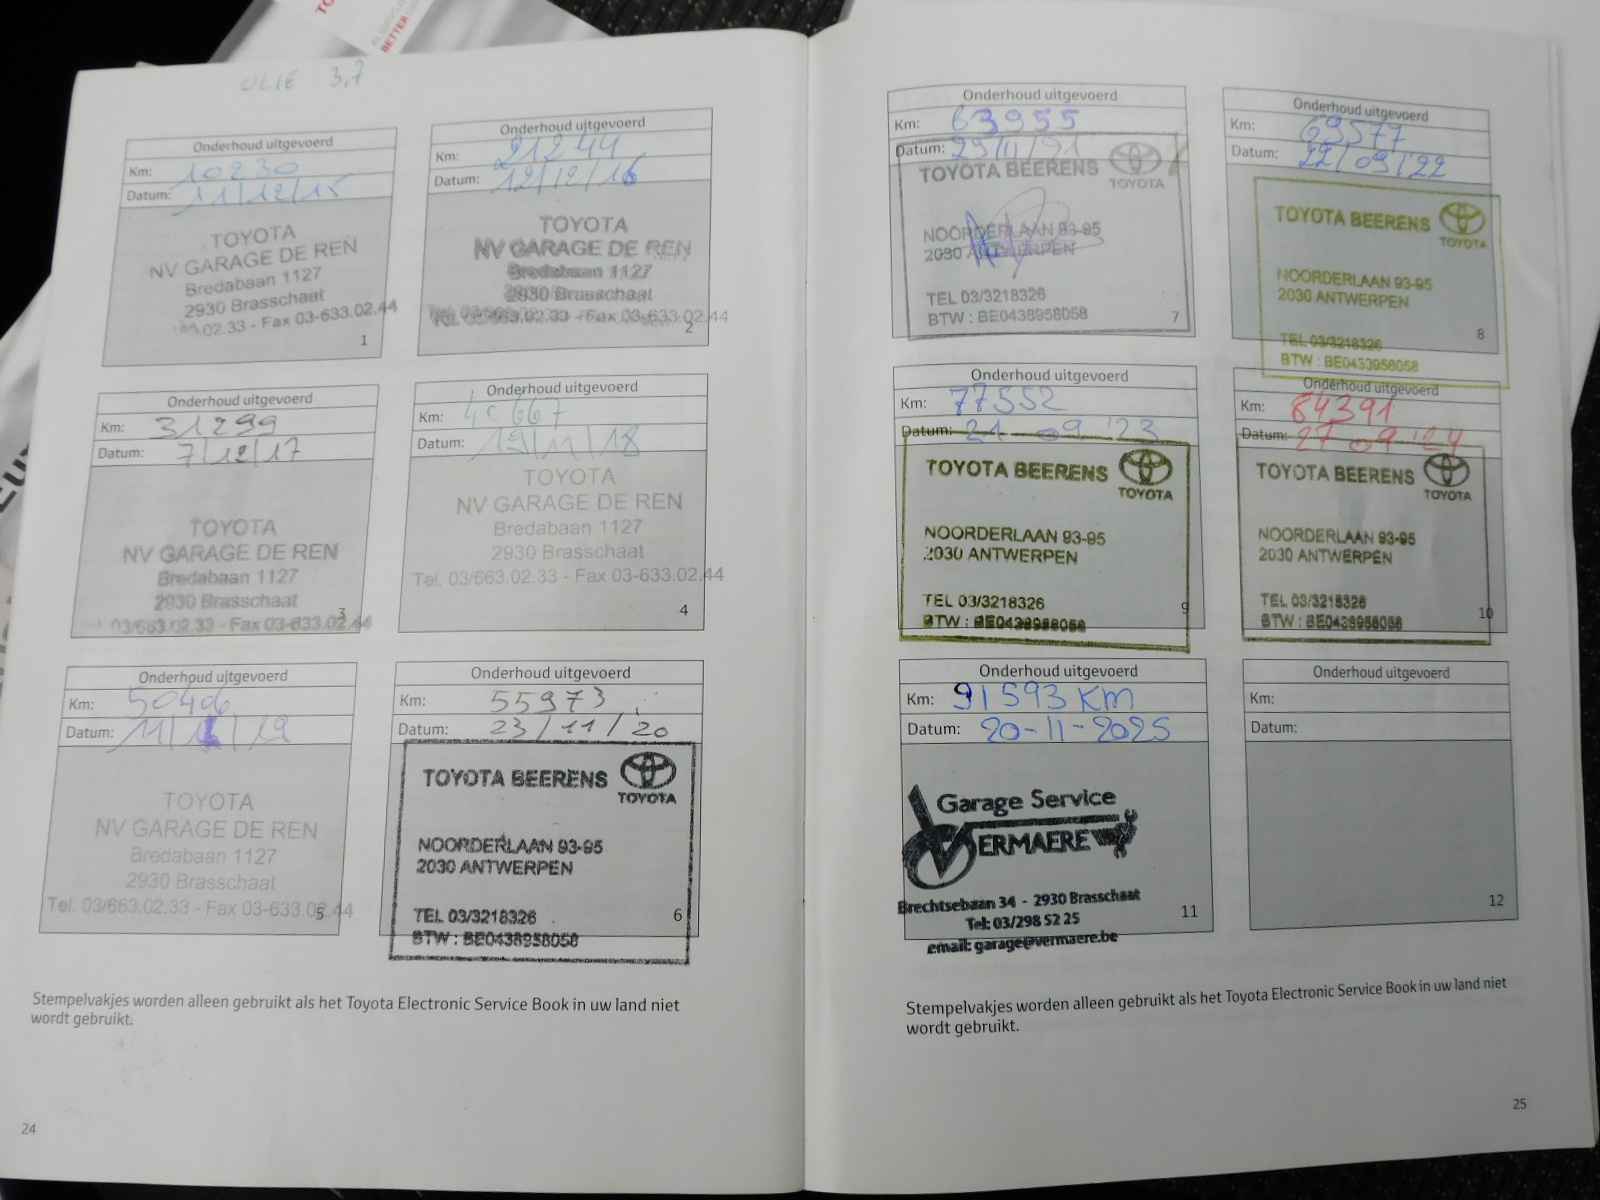 BETTER
OLIE 3,7
Onderhoud uitgevoerd
Km: 10230
Datum: 11/12/15
TOYOTA
NV GARAGE DE REN
Bredabaan 1127
2930 Brasschaat
.02.33 - Fax 03-633.02.44
1
Onderhoud uitgevoerd
Km: 21244
Datum: 12/12/16
TOYOTA
NV GARAGE DE REN
Bredabaan 1127
2930 Brasschaat
Tel. 03/663.02.33 - Fax 03-633.02.44
2
Onderhoud uitgevoerd
Km: 31299
Datum: 7/12/17
TOYOTA
NV GARAGE DE REN
Bredabaan 1127
2930 Brasschaat
03/663.02.33 - Fax 03-633.02.44
3
Onderhoud uitgevoerd
Km: 40667
Datum: 19/11/18
TOYOTA
NV GARAGE DE REN
Bredabaan 1127
2930 Brasschaat
Tel. 03/663.02.33 - Fax 03-633.02.44
4
Onderhoud uitgevoerd
Km: 50406
Datum: 11/ /19
TOYOTA
NV GARAGE DE REN
Bredabaan 1127
2930 Brasschaat
Tel. 03/663.02.33 - Fax 03-633.02.44
5
Onderhoud uitgevoerd
Km: 55973
Datum: 23/11/20
TOYOTA BEERENS
TOYOTA
NOORDERLAAN 93-95
2030 ANTWERPEN
TEL 03/3218326
BTW : BE0438958058
6
Stempelvakjes worden alleen gebruikt als het Toyota Electronic Service Book in uw land niet
wordt gebruikt.
24
Onderhoud uitgevoerd
Km: 63955
Datum: 29/11/21
TOYOTA BEERENS
TOYOTA
NOORDERLAAN 93-95
2030 ANTWERPEN
TEL 03/3218326
BTW : BE0438958058
7
Onderhoud uitgevoerd
Km: 69577
Datum: 22/09/22
TOYOTA BEERENS
TOYOTA
NOORDERLAAN 93-95
2030 ANTWERPEN
TEL 03/3218326
BTW : BE0438958058
8
Onderhoud uitgevoerd
Km: 77552
Datum: 21 09 '23
TOYOTA BEERENS
TOYOTA
NOORDERLAAN 93-95
2030 ANTWERPEN
TEL 03/3218326
BTW : BE0438958058
9
Onderhoud uitgevoerd
Km: 84391
Datum: 27 09 '24
TOYOTA BEERENS
TOYOTA
NOORDERLAAN 93-95
2030 ANTWERPEN
TEL 03/3218326
BTW : BE0438958058
10
Onderhoud uitgevoerd
Km: 91593 KM
Datum: 20-11-2025
Garage Service
VERMAERE
Brechtsebaan 34 - 2930 Brasschaat
Tel: 03/298 52 25
email: garage@vermaere.be
11
Onderhoud uitgevoerd
Km:
Datum:
12
Stempelvakjes worden alleen gebruikt als het Toyota Electronic Service Book in uw land niet
wordt gebruikt.
25